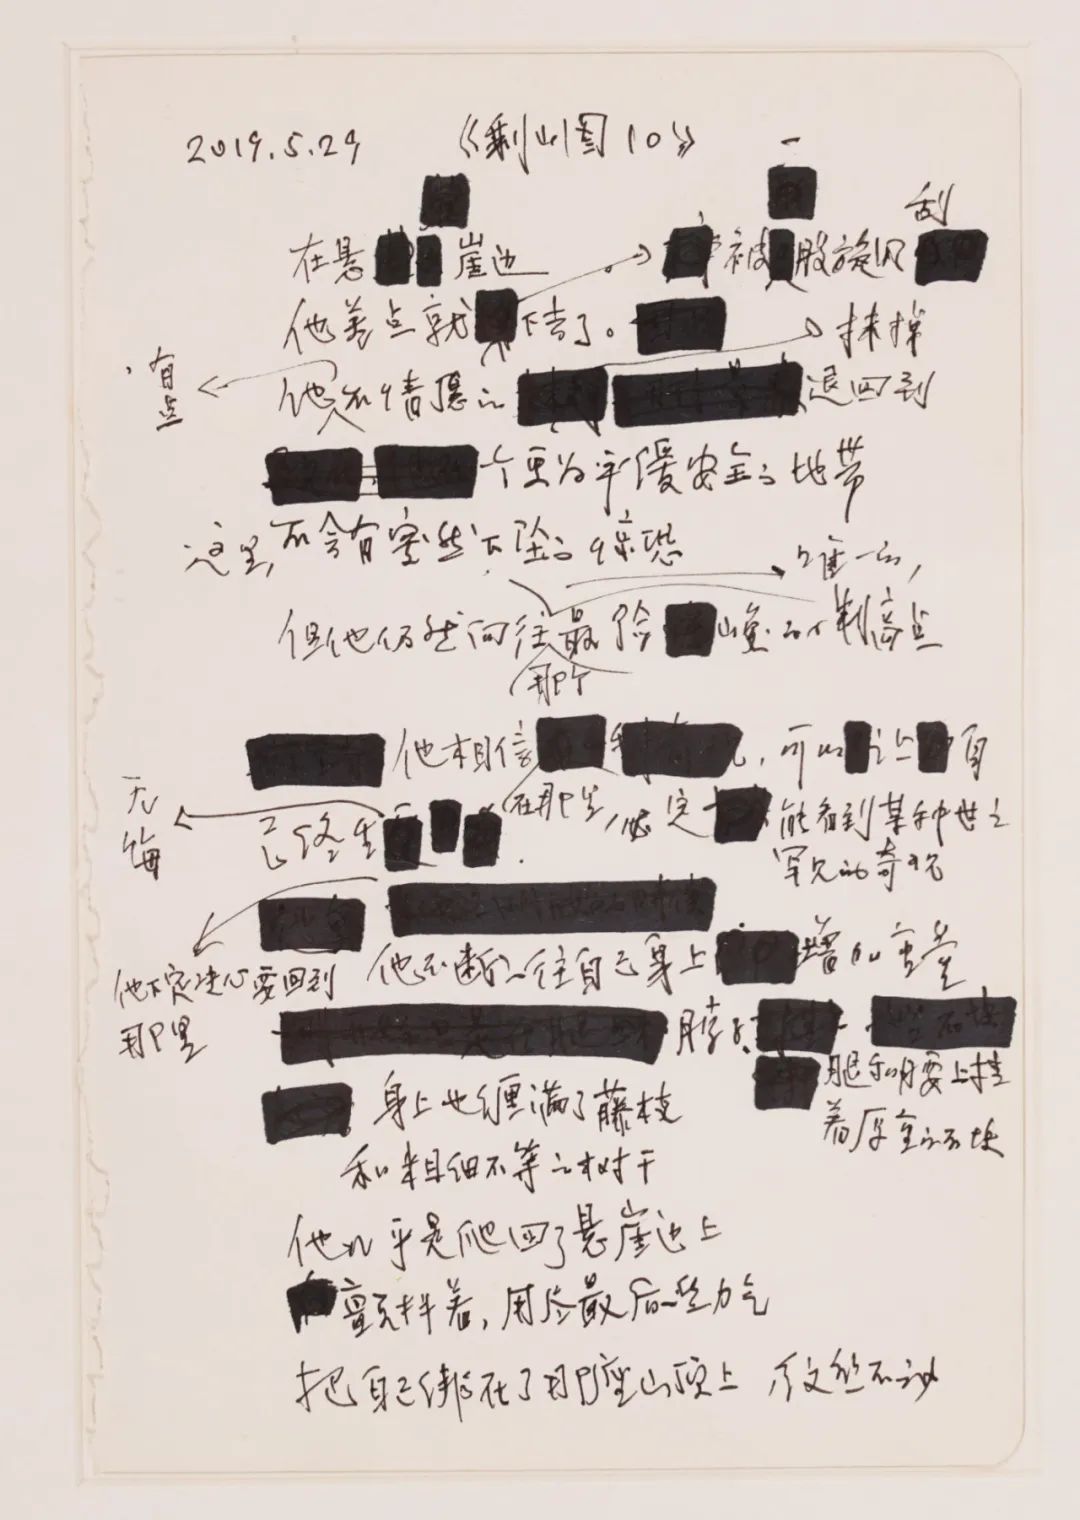 2019.5.29 《剩山图10》
一
刮
在悬崖边 被股旋风
他差点就下去了。
抹掉
有点
他不情愿的退回到
个更为平缓安全的地带
这里,不会有突然下坠的惊恐
唯一的,
但他仍然向往最险山峦的制高点
那个
他相信,可以让自
无悔
在那里,必定能看到某种世上
己终生
罕见的奇观
他不断的往自己身上增加重量
他下定决心要回到
那里
脖子
腿和腰上挂
身上也缠满了藤枝
着厚重的石块
和粗细不等的树干
他几乎是爬回了悬崖边上
颤抖着,用尽最后一些力气
把自己绑在了那座山顶上 纹丝不动